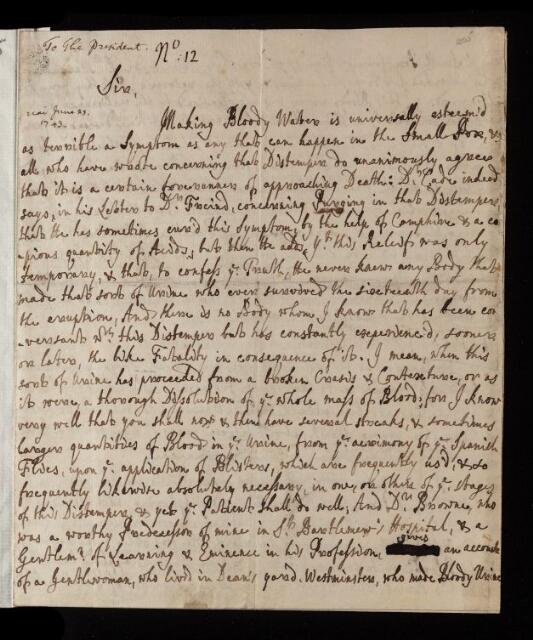 To The President. No: 12
Sir,
read June 23.
1743.
Making Bloody Water is universally esteem'd
as terrible a Symptom as any that can happen in the Small Pox, &
all who have wrote concerning that Distemper do unanimously agree
that it is a certain forerunner of approaching Death: Dr. Cade indeed
says, in his Letter to Dr. Freind, concerning Purging in that Distemper,
that He has sometimes cur'd this symptom by the help of Camphire & a co
pious quantity of Acids, but then He adds, yt. this Relief was only
temporary, & that, to confess ye. Truth, He never knew any Body that
made that sort of Urine who ever surviv'd the sixteenth day from
the eruption, And there is no Body whom I know that has been con
versant wth. this Distemper but has constantly experienc'd, sooner
or later, the like Fatality in consequence of it. I mean, when this
sort of Urine has proceeded from a broken Crasis & Contexture, or as
it were, a thorough Dissolution of ye. whole mass of Blood; for I know
very well that you shall now & then have several streaks, & sometimes
larger quantities of Blood in ye. Urine, from ye. acrimony of ye. Spanish
Flies, upon ye. application of Blisters, which are frequently us'd, & so
frequently likewise absolutely necessary, in one, or other of ye. Stages
of this Distemper, & yet ye. Patient shall do well; And Dr. Browne, who
was a worthy Predecessor of mine in St. Bartlemew's Hospital, & a
Gentlemn. of Learning & Eminence in his Profession, gives an account
of a Gentlewoman, who liv'd in Dean's yard. Westminster, who made Bloody Urine